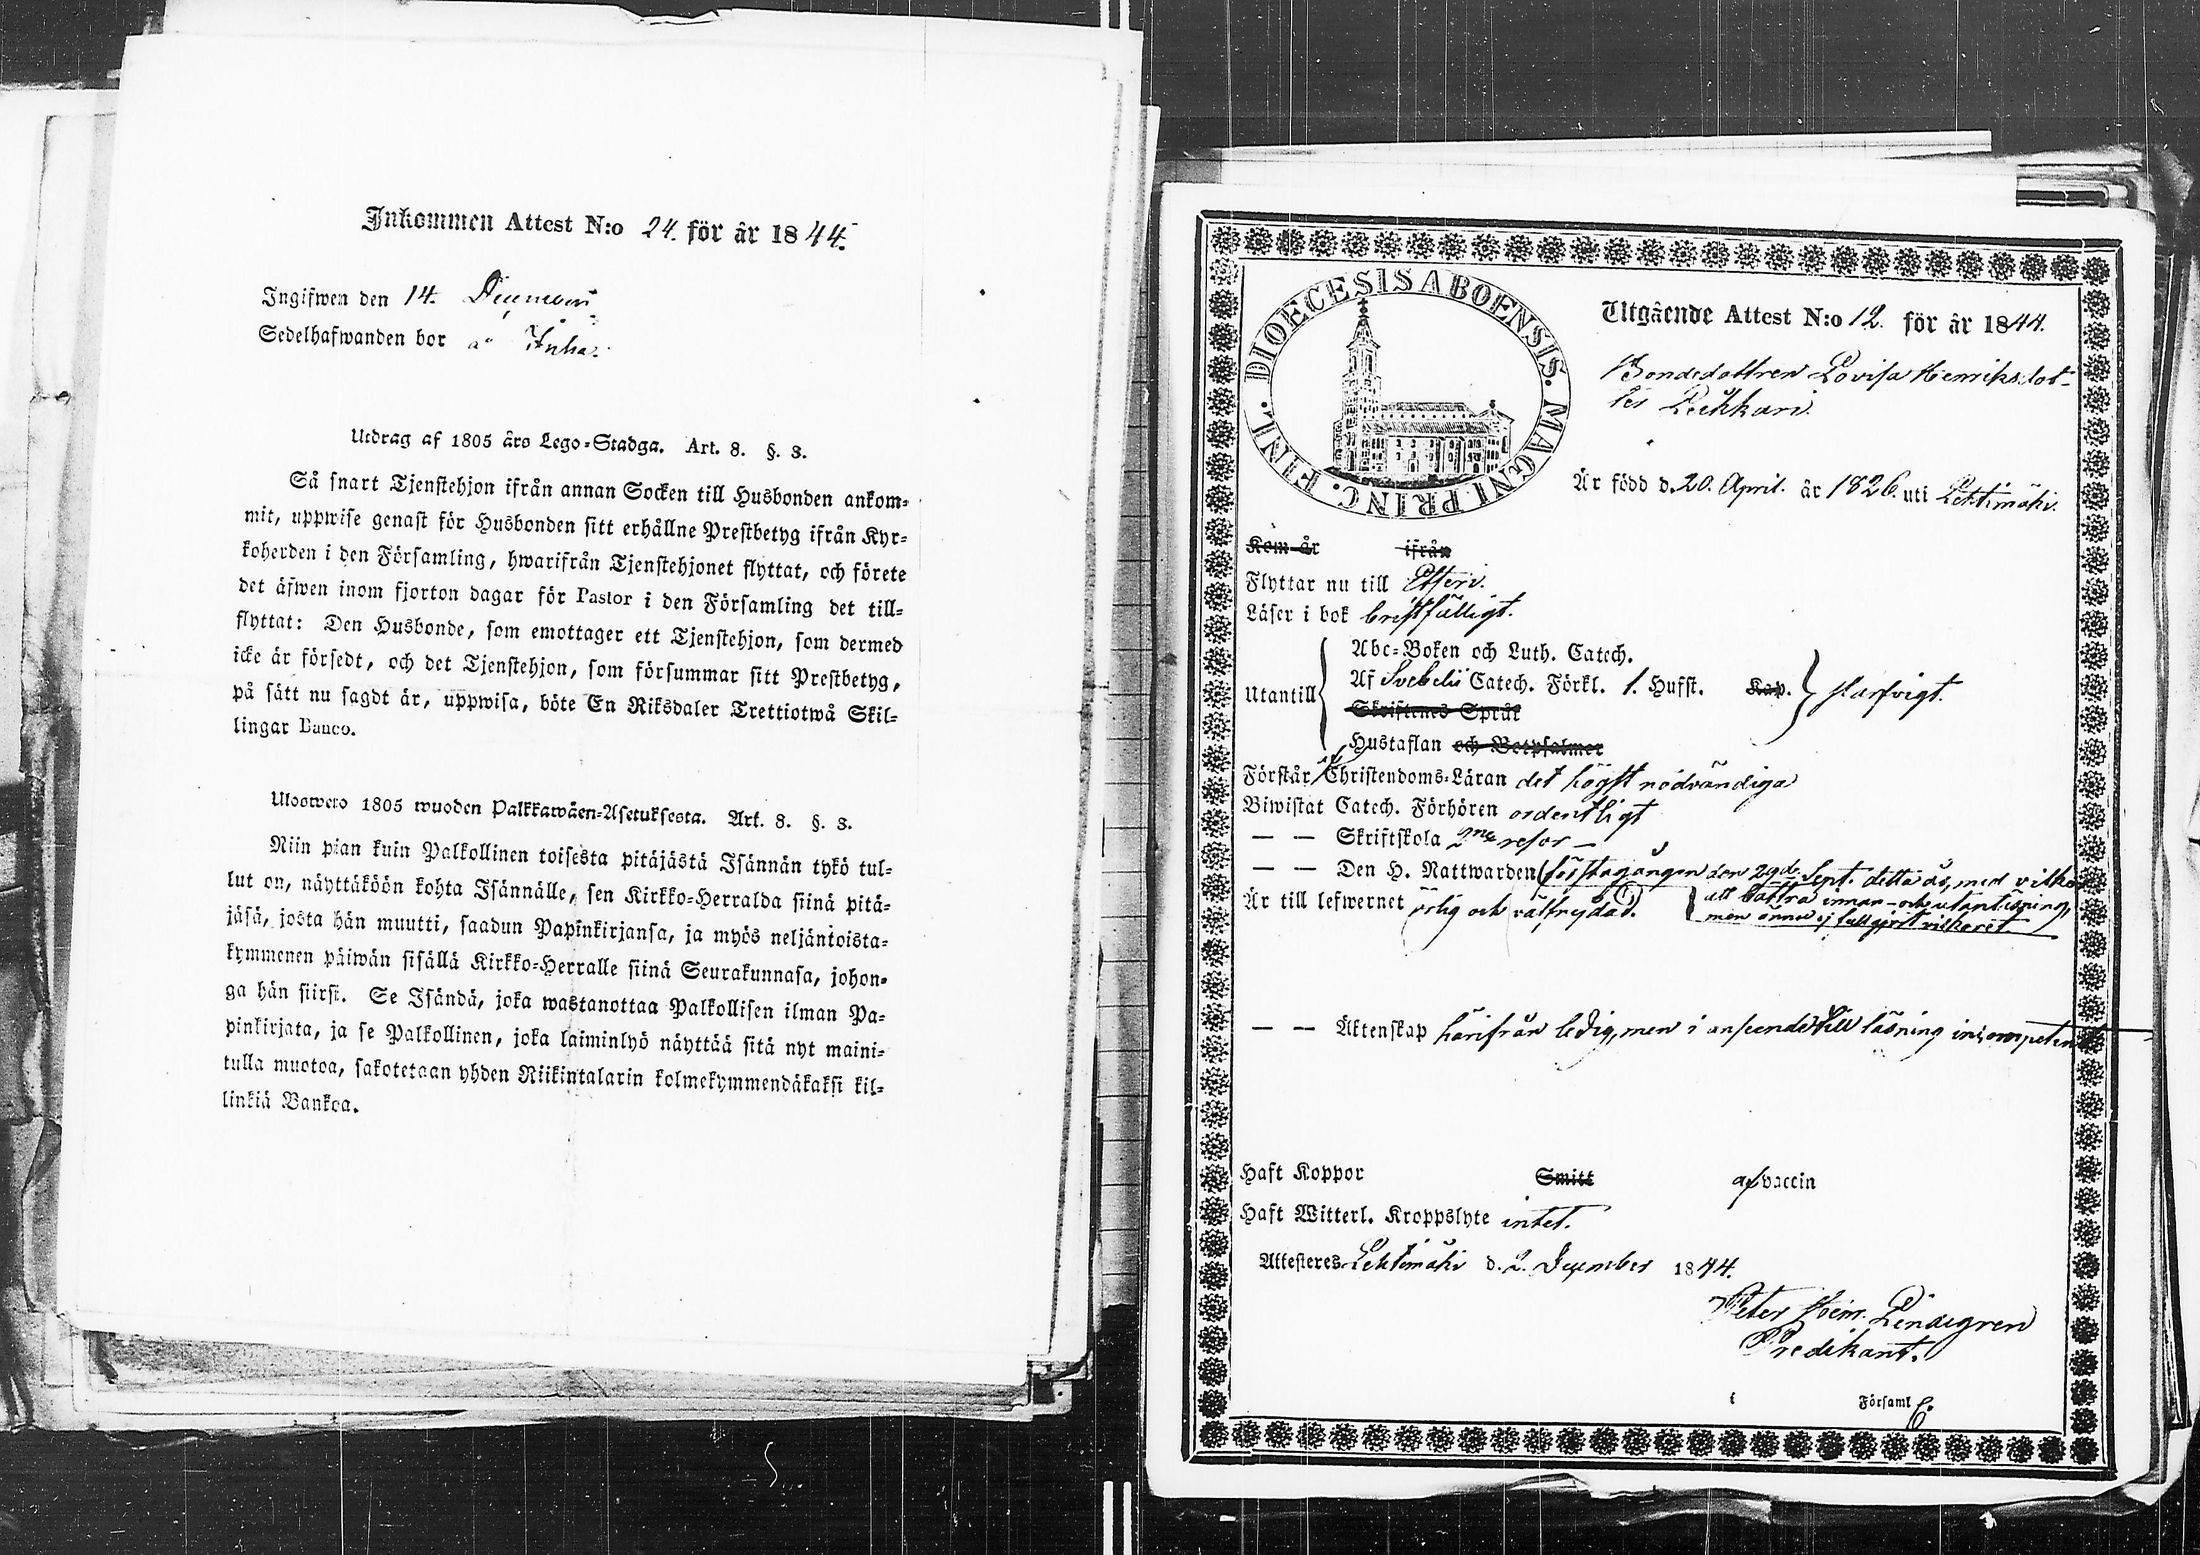 Inkommen Attest N:o 24. för år 1844.
Ingifwen den 14. December
Sedelhafwanden bor å
Utdrag af 1805 års Lego-Stadga. Art. 8. §. 3.
Så snart Tjenstehjon ifrån annan Socken till Husbonden ankom-
mit, uppwise genast för Husbonden sitt erhållne Prestbetyg ifrån Kyr-
koherden i den Församling, hwarifrån Tjenstehjonet flyttat, och förete
det äfwen inom fjorton dagar för Pastor i den Församling det till-
flyttat: Den Husbonde, som emottager ett Tjenstehjon, som dermed
icke är försedt, och det Tjenstehjon, som försummar sitt Prestbetyg,
på sätt nu sagdt är, uppwisa, böte En Riksdaler Trettiotwå Skil-
lingar Banco.
Uloswero 1805 wuoden Palkkawäen-Asetuksesta. Art. 8. §. 3.
Niin pian kuin Palkollinen toisesta pitäjästä Isännän tykö tul-
lut on, näyttäköön kohta Isännälle, sen Kirkko-Herralda siinä pitä-
jäsä, josta hän muutti, saadun Papinkirjansa, ja myös neljäntoista-
kymmenen päiwän sisällä Kirkko-Herralle siinä Seurakunnasa, johon-
ga hän siirsi. Se Isändä, joka wastanottaa Palkollisen ilman Pa-
pinkirjata, ja se Palkollinen, joka laiminlyö näyttää sitä nyt maini-
tulla muotoa, sakotetaan yhden Riikintalarin kolmekymmendäkaksi kil-
linkiä Bankoa.
DIOECESIS ABOENSIS. MAGNI PRINC. FINL.
Utgående Attest N:o 12. för år 1844.
Bondedottren Lovisa Henriksdot-
ter
Är född d. 20. April. år 1826. uti Lehtimäki.
Kom år ifrån
Flyttar nu till Etseri.
Läser i bok bristfälligt.
Abc-Boken och Luth. Catech.
Utantill Af Svebelii Catech. Förkl. 1. Hufst. Kap. starfvigt.
Skriftenes Språk
Hustaflan och Botpsalmer
Förstår Christendoms-Läran det högst nödvändiga
Biwistat Catech. Förhören ordentligt
— — Skriftskola 2ne resor —
— — Den H. Nattwarden första gången den 29de Sept. detta år, med vilkor
att bättra innan- och utanläsning,
Är till lefwernet ärlig och välfrejdad. men ännu ej fullgjort vilkoret
— — Äktenskap härifrån ledig, men i anseende till läsning incompetent
Haft Koppor Smitt af vaccin
Haft Witterl. Kroppslyte intet.
Attesteres Lehtimäki d. 2. December 1844.
Peter Henr. Lindegren
Predikant.
i Församl